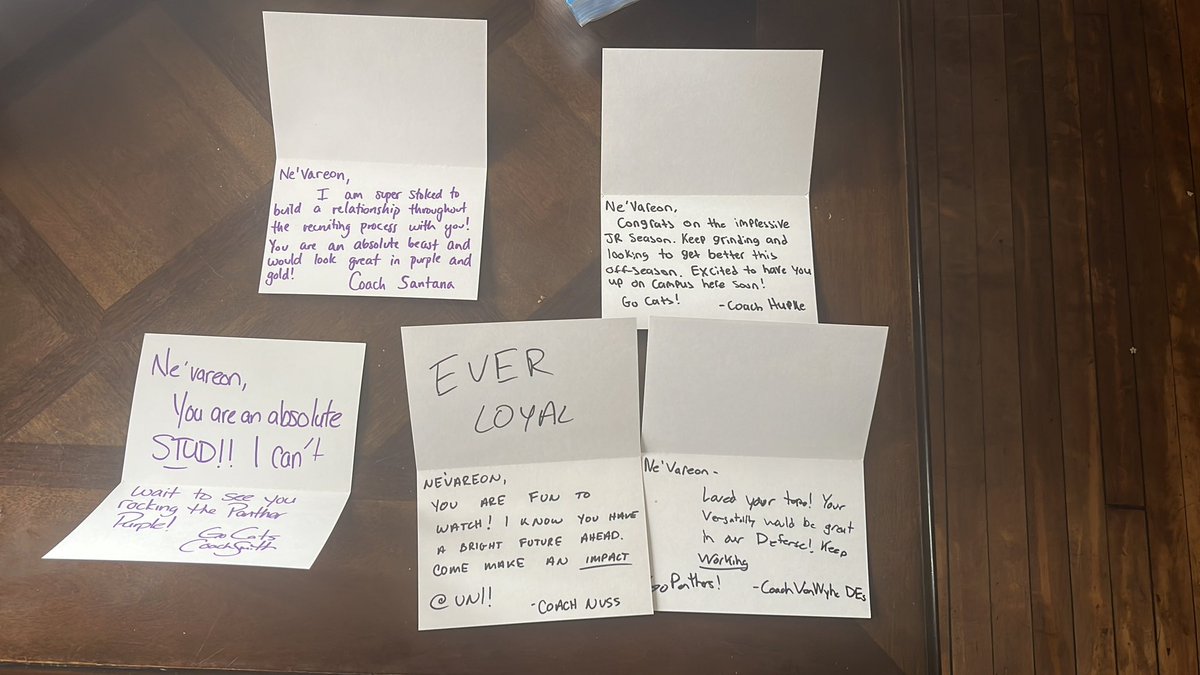 Ne'Vareon,
I am super stoked to
build a relationship throughout
the recruiting process with you!
You are an absolute beast and
would look great in purple and
gold!
Coach Santana
Ne'Vareon,
Congrats on the impressive
JR Season. Keep grinding and
looking to get better this
off-season. Excited to have you
up on campus here soon!
Go Cats! -Coach Hupke
Ne'vareon,
You are an absolute
STUD!! I can't
wait to see you
rocking the Panther
Purple!
Go Cats
Coach Smith
EVER
LOYAL
NE'VAREON,
YOU ARE FUN TO
WATCH! I KNOW YOU HAVE
A BRIGHT FUTURE AHEAD.
COME MAKE AN IMPACT
@ UNI!
-COACH NUSS
Ne'Vareon -
Loved your tape! Your
Versatility would be great
In our Defense! Keep
Working
Go Panthers! -Coach VanWyhe DEs